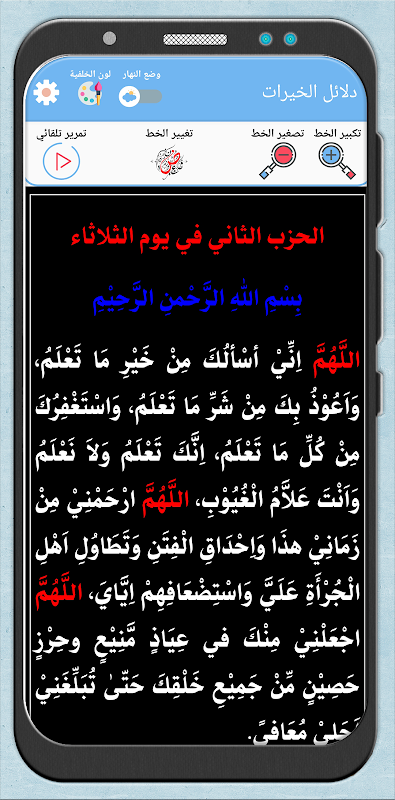 دلائل الخيرات
وضع النهار
لون الخلفية
تكبير الخط
تصغير الخط
تغيير الخط
تمرير تلقائي
الحزب الثاني في يوم الثلاثاء
بِسْمِ اللهِ الرَّحْمنِ الرَّحِيْمِ
اللَّهُمَّ اِنِّيْ أسْألُكَ مِنْ خَيْرِ مَا تَعْلَمُ،
وَاَعُوْذُ بِكَ مِنْ شَرِّ مَا تَعْلَمُ، وَاسْتَغْفِرُكَ
مِنْ كُلِّ مَا تَعْلَمُ، اِنَّكَ تَعْلَمُ وَلاَ نَعْلَمُ
وَاَنْتَ عَلَّامُ الْغُيُوْبِ، اللَّهُمَّ ارْحَمْنِيْ مِنْ
زَمَانِيْ هذَا وَاِحْدَاقِ الْفِتَنِ وَتَطَاوُلِ اَهْلِ
الْجُرْأَةِ عَلَيَّ وَاسْتِضْعَافِهِمْ اِيَّايَ، اللَّهُمَّ
اجْعَلْنِيْ مِنْكَ في عِيَاذٍ مَّنِيْعٍ وحِرْزٍ
حَصِيْنٍ مِّنْ جَمِيْعِ خَلْقِكَ حَتّىٰ تُبَلِّغَنِيْ
اَجَلِيْ مُعَافىً.